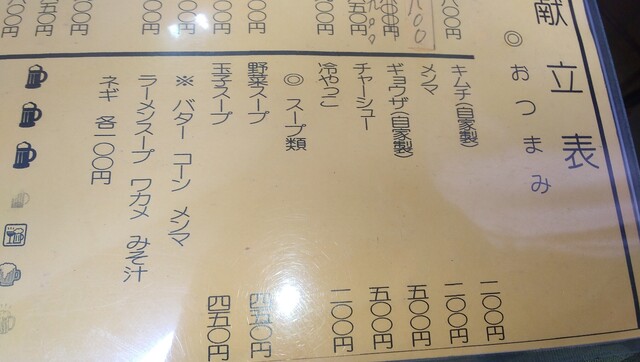 献立表
◎ おつまみ
キムチ(自家製) 二〇〇円
メンマ 二〇〇円
ギョウザ(自家製) 五〇〇円
チャーシュー 五〇〇円
冷やっこ 二〇〇円
◎ スープ類
野菜スープ 四五〇円
玉子スープ 四五〇円
※ バター コーン メンマ
ラーメンスープ ワカメ みそ汁
ネギ 各一〇〇円